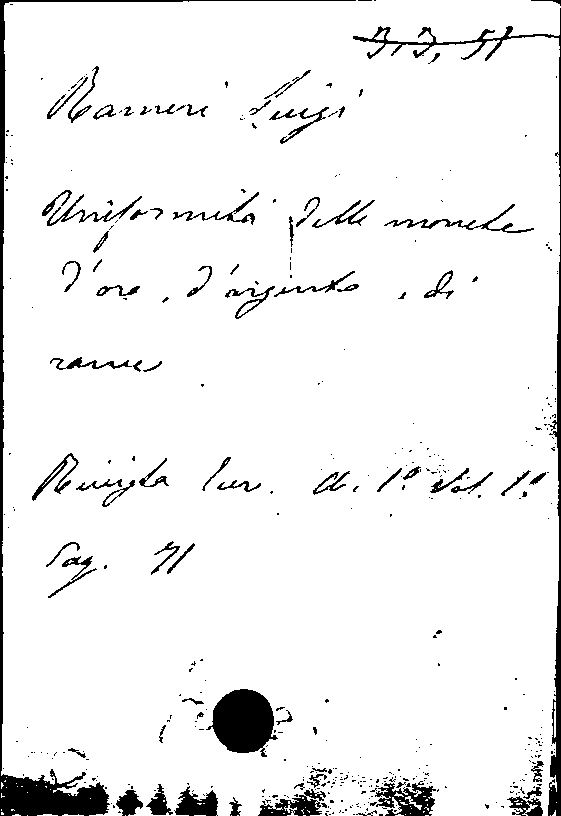 3, 3, 51
Rameri Luigi
Uniformità delle monete
d'oro, d'argento, di
rame
Rivista Eur. A. 1º Vol. 1º
Pag. 71